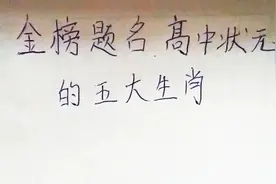 金榜题名.高中状元
的五大生肖